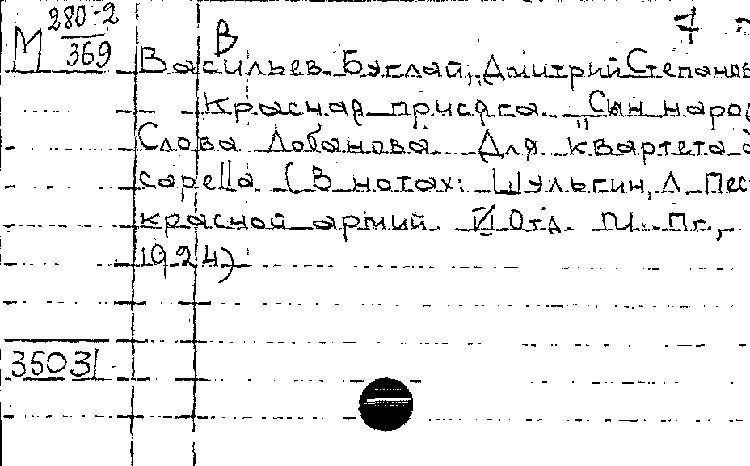 М 280-2
369
В
Васильев-Буглай, Дмитрий Степанов
Красная присяга. "Сын народ
Слова Лобанова. Для квартета а
capella. (В нотах: Шульгин, Л. Пес
красной армии. Отд. Пг.,
1924)
35031